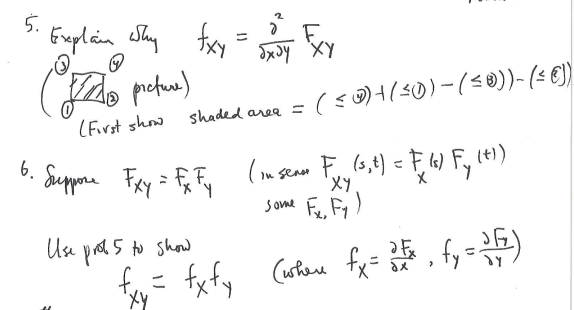 5. Explain why f_XY = ∂²/∂x∂y F_XY
③ ④
( picture)
① ②
(First show shaded area = (≤ ④)+(≤①)-(≤③))-(≤②))
6. Suppose F_XY = F_X F_Y (in sense F_XY (s,t) = F_X (s) F_Y (t)
some F_X, F_Y)
Use prob 5 to show
f_XY = f_X f_Y (where f_X = ∂F_X/∂x , f_Y = ∂F_Y/∂y)